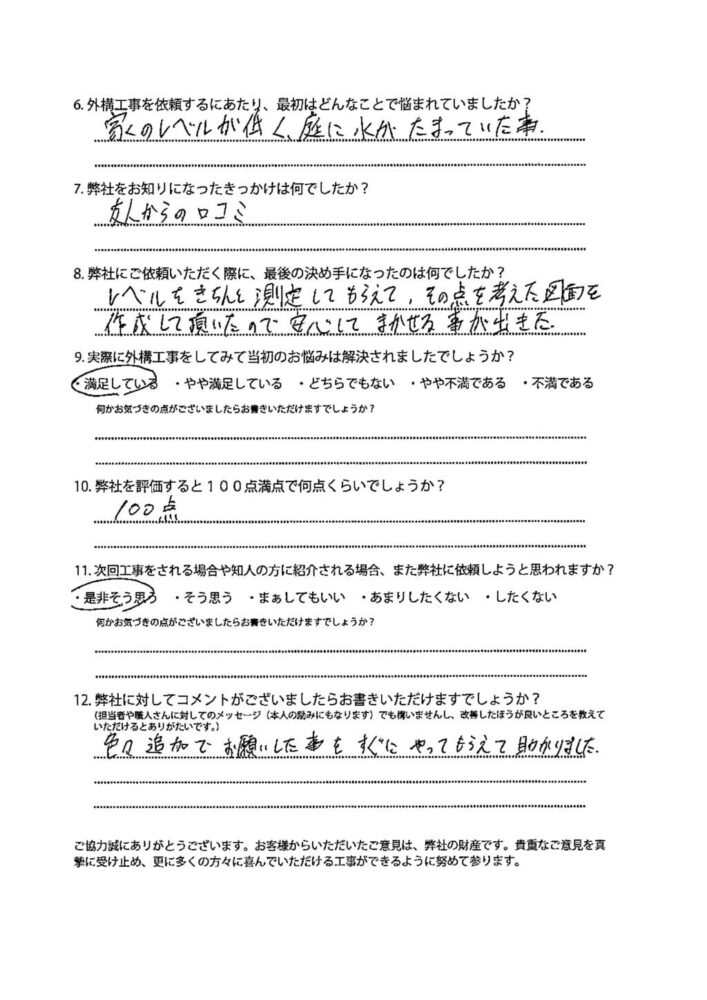 6. 外構工事を依頼するにあたり、最初はどんなことで悩まれていましたか？
のレベルが低く、庭に水がたまっていた事.
7. 弊社をお知りになったきっかけは何でしたか？
友人からの口コミ
8. 弊社にご依頼いただく際に、最後の決め手になったのは何でしたか？
レベルをきちんと測定してもらえて、その点を考えた図面を
作成して頂いたので安心してまかせる事が出きた.
9. 実際に外構工事をしてみて当初のお悩みは解決されましたでしょうか？
・満足している ・やや満足している ・どちらでもない ・やや不満である ・不満である
何かお気づきの点がございましたらお書きいただけますでしょうか？
10. 弊社を評価すると１００点満点で何点くらいでしょうか？
100点
11. 次回工事をされる場合や知人の方に紹介される場合、また弊社に依頼しようと思われますか？
・是非そう思う ・そう思う ・まぁしてもいい ・あまりしたくない ・したくない
何かお気づきの点がございましたらお書きいただけますでしょうか？
12. 弊社に対してコメントがございましたらお書きいただけますでしょうか？
（担当者や職人さんに対してのメッセージ（本人の励みにもなります）でも構いませんし、改善したほうが良いところを教えて
いただけるとありがたいです。）
色々追加でお願いした事もすぐにやってもらえて助かりました.
ご協力誠にありがとうございます。お客様からいただいたご意見は、弊社の財産です。貴重なご意見を真
摯に受け止め、更に多くの方々に喜んでいただける工事ができるように努めて参ります。